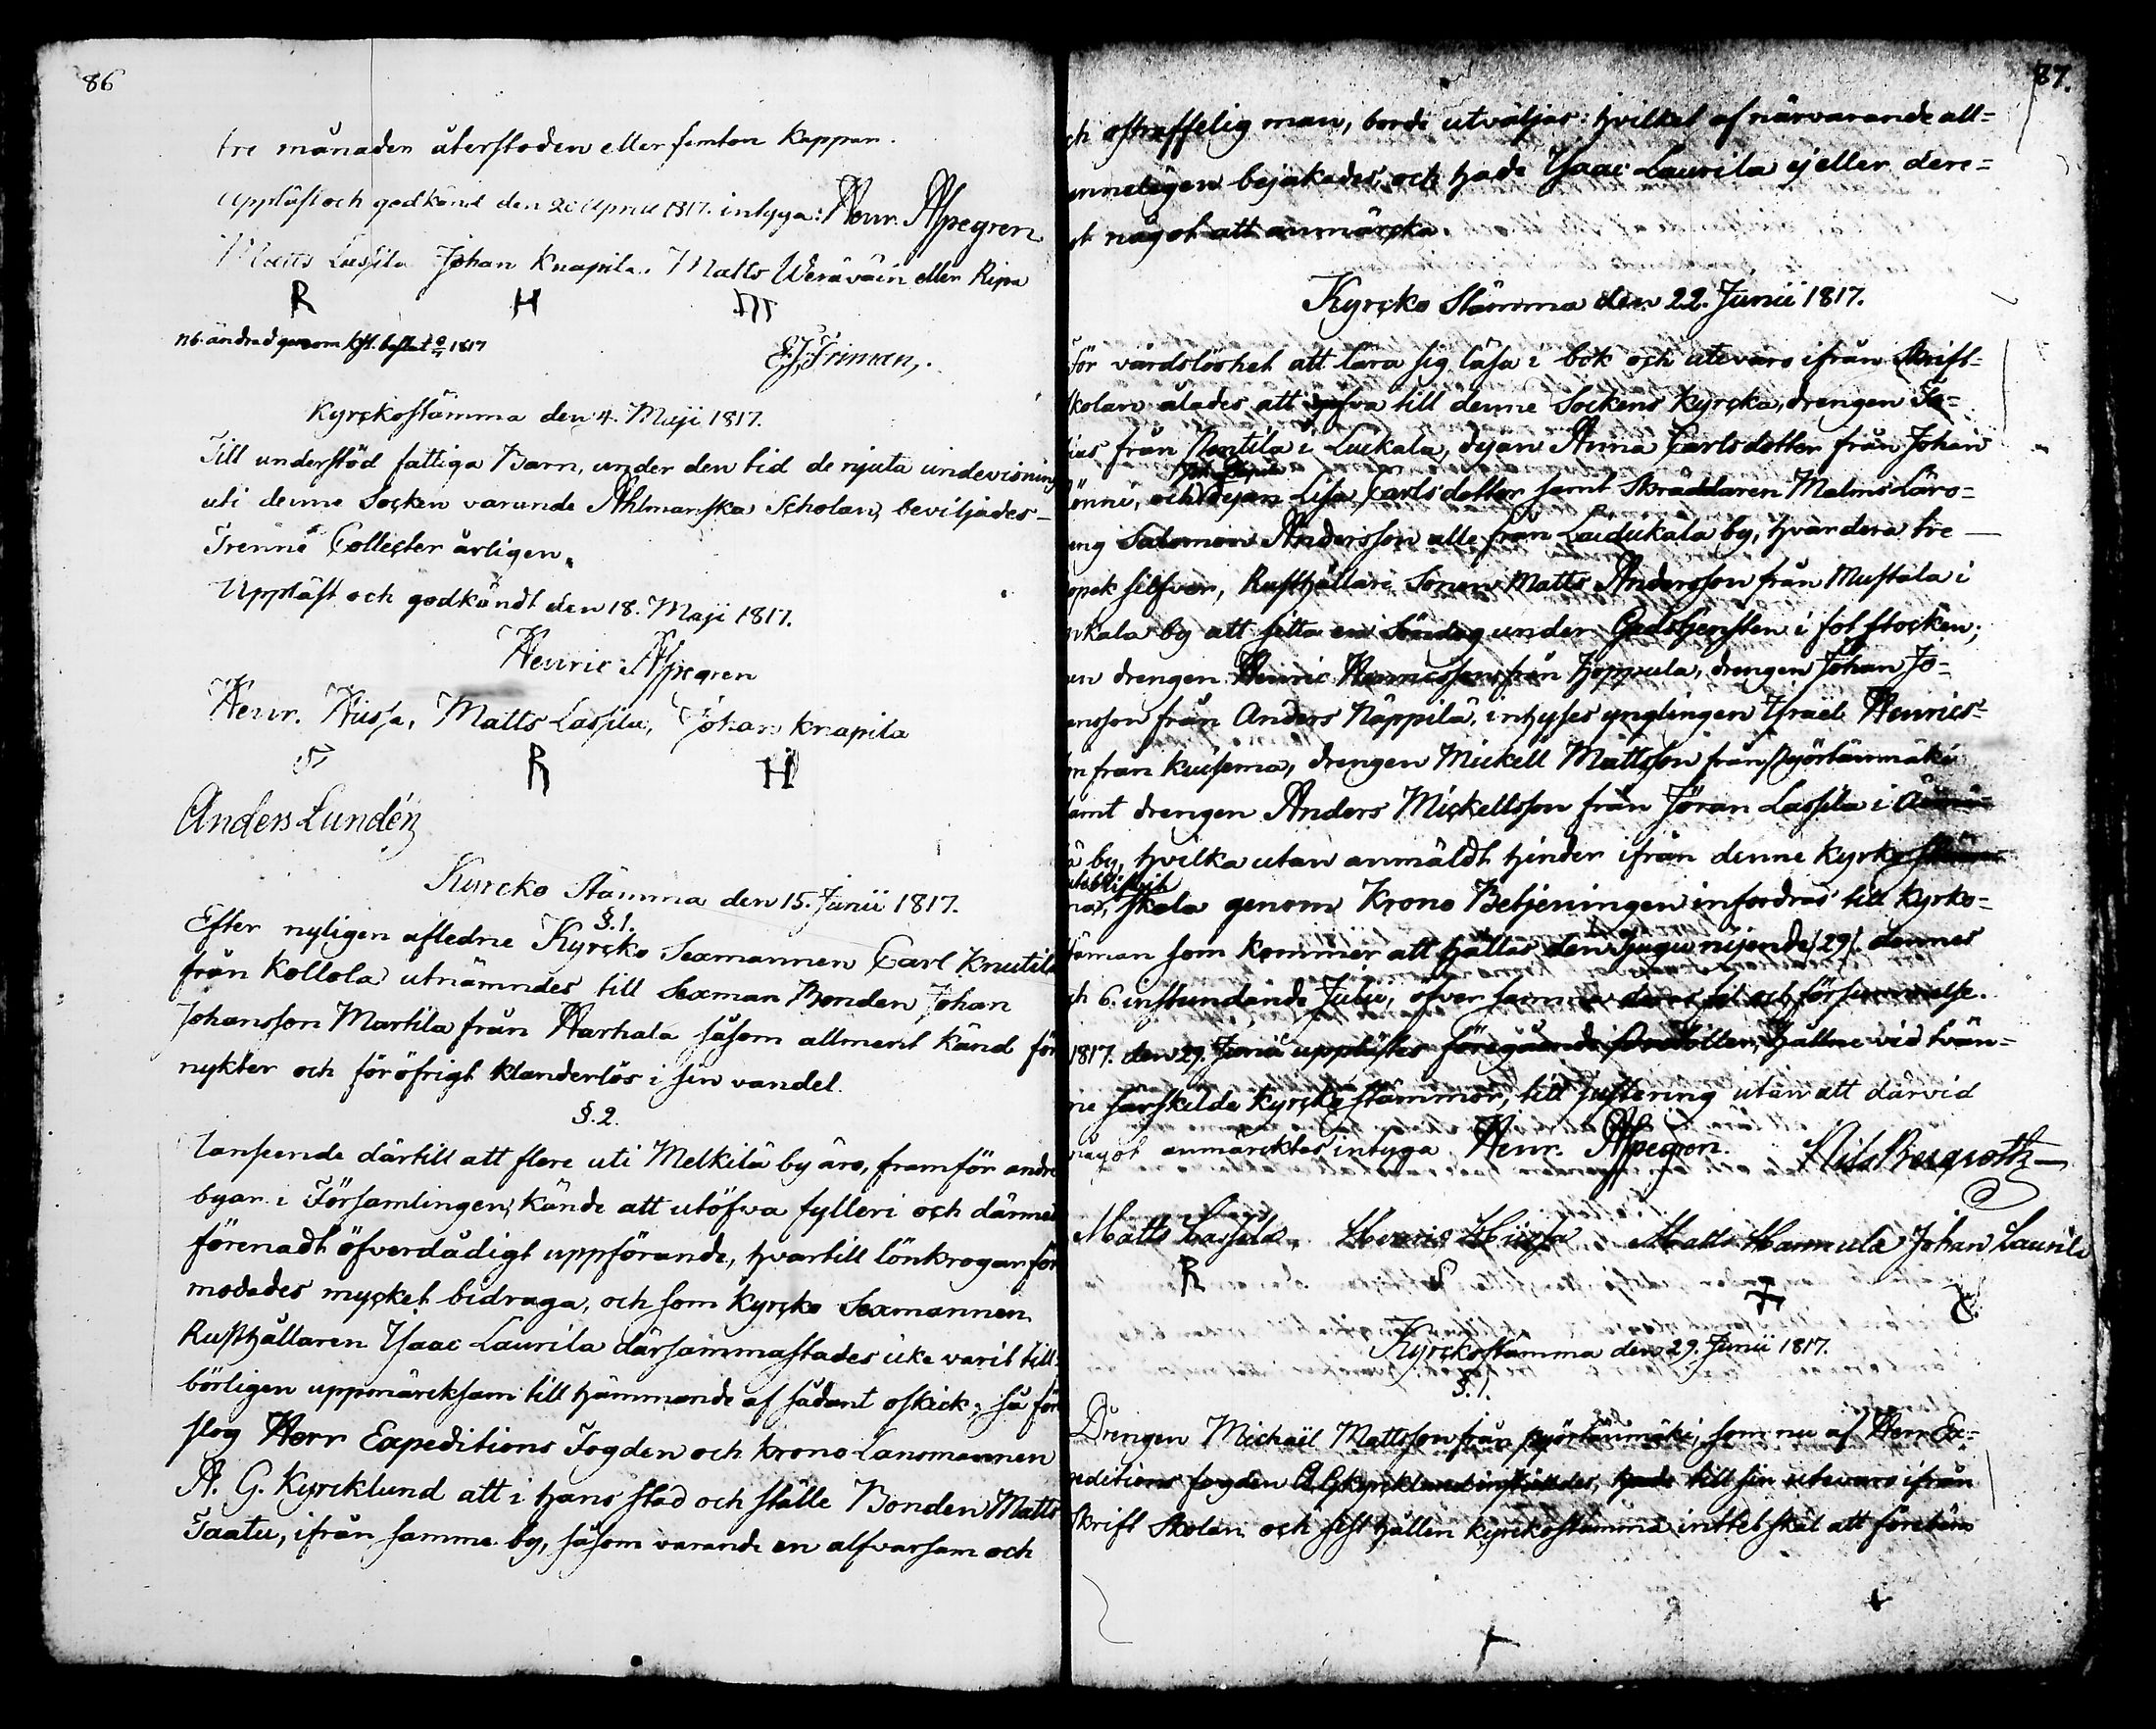 86
tre månader återstoden eller femton kappar.
Uppläst och godkänd den 20 April 1817. intyga: Henr. Aspegren
Matts Lassila Johan Knapila. Matts Weräväin eller Ripa
R H m
nb. ändrad genom 1817
E. J. Friman.
Kyrckostämma den 4. Maji 1817.
Till understöd fattiga Barn, under den tid de njuta undevisning
uti denne Socken varande Ahlmanska Scholan, beviljades
Trenne Collecter årligen.
Uppläst och godkändt den 18. Maji 1817.
Henric Aspegren
Henr. Hiisa, Matts Lassila, Johan Knapila
R H
Anders Lundén
Kyrcko Stämma den 15. Junii 1817.
§. 1.
Efter nyligen afledne Kyrcko Sexmannen Carl Knutila
från Kollola utnämndes till Sexman Bonden Johan
Johansson Martila från Karhala såsom allment känd för
nykter och föröfrigt klanderlös i sin vandel.
§. 2.
I anseende därtill att flere uti Melkilä by äro, framför andre
byar i Församlingen, kände att utöfva fylleri och därmed
förenadt öfverdådigt uppförande, hvartill lönkrogar för
modades mycket bidraga, och som Kyrcko Sexmannen
Rusthållaren Ysaac Laurila därsammastades icke varit till
börligen uppmärcksam till hämmande af sådant oskick; så för
slog Herr Expeditions Fogden och Krono Länsmannen
A. G. Kyrcklund att i hans stad och ställe Bonden Matts
Taatu, ifrån samme by, såsom varande en alfvarsam och
87.
ch ostraffelig man, borde utväljas: hvilket af närvarande all=
männeligen bejakades, och hade Ysaac Laurila ej eller dere=
ot något att anmärcka.
Kyrcko Stämma den 22. Junii 1817.
För vårdslöshet att lära sig läsa i bok och utevaro ifrån Skrift=
skolan ålades att gifva till denne Sockens Kyrcka, drengen
från Pentila i Luckala, pigan Anna Carlsdotter från Johan
önni, och pigan Lisa Carlsdotter samt Skräddaren Malms Läro=
eng Salomon Andersson alle från Laidukala by, hvardera tre
opek silfver, Rusthållare Sonen Matts Andersson från Mustala i
kala by att sitta en Söndag under Gudstjensten i fotstocken;
en drengen Henric Henricsson från Hoppula, drengen Johan Jo=
ansson från Anders Näppilä, inhyses ynglingen Israel Henrics=
on från Kuisema, drengen Mickell Mattsson från Pyörtänmäki
samt drengen Anders Mickellsson från Jöran Lassila i
å by, hvilka utan anmäldt hinder ifrån denne Kyrko
uteblifvit
skola genom Krono Betjeningen infordras till Kyrko=
stäman som kommer att hållas den tjugu nijonde /29/ dennes
ch 6. instundande Julii, öfver samma deras fel och försummelse.
1817. den 29. Junii upplästes föregående Protoller, hållne vid tvän=
ne särskilde Kyrckostämmor, till justering utan att därvid
något anmärcktes, intyga Henr. Aspegren. Nils Bergroth
Matts Lassila, Henric Hiisa Matts Hannula Johan Laurila
R
Kyrckostämma den 29. Junii 1817.
§. 1.
Drengen Michaïl Mattsson från Pyörtänmäki, som nu af Herr Ex=
peditions fogden A. G. Kyrcklund inställdes, hade till sin utevaro ifrån
Skrift Skolan och sist hållen Kyrckostämma inttet skäl att förebära